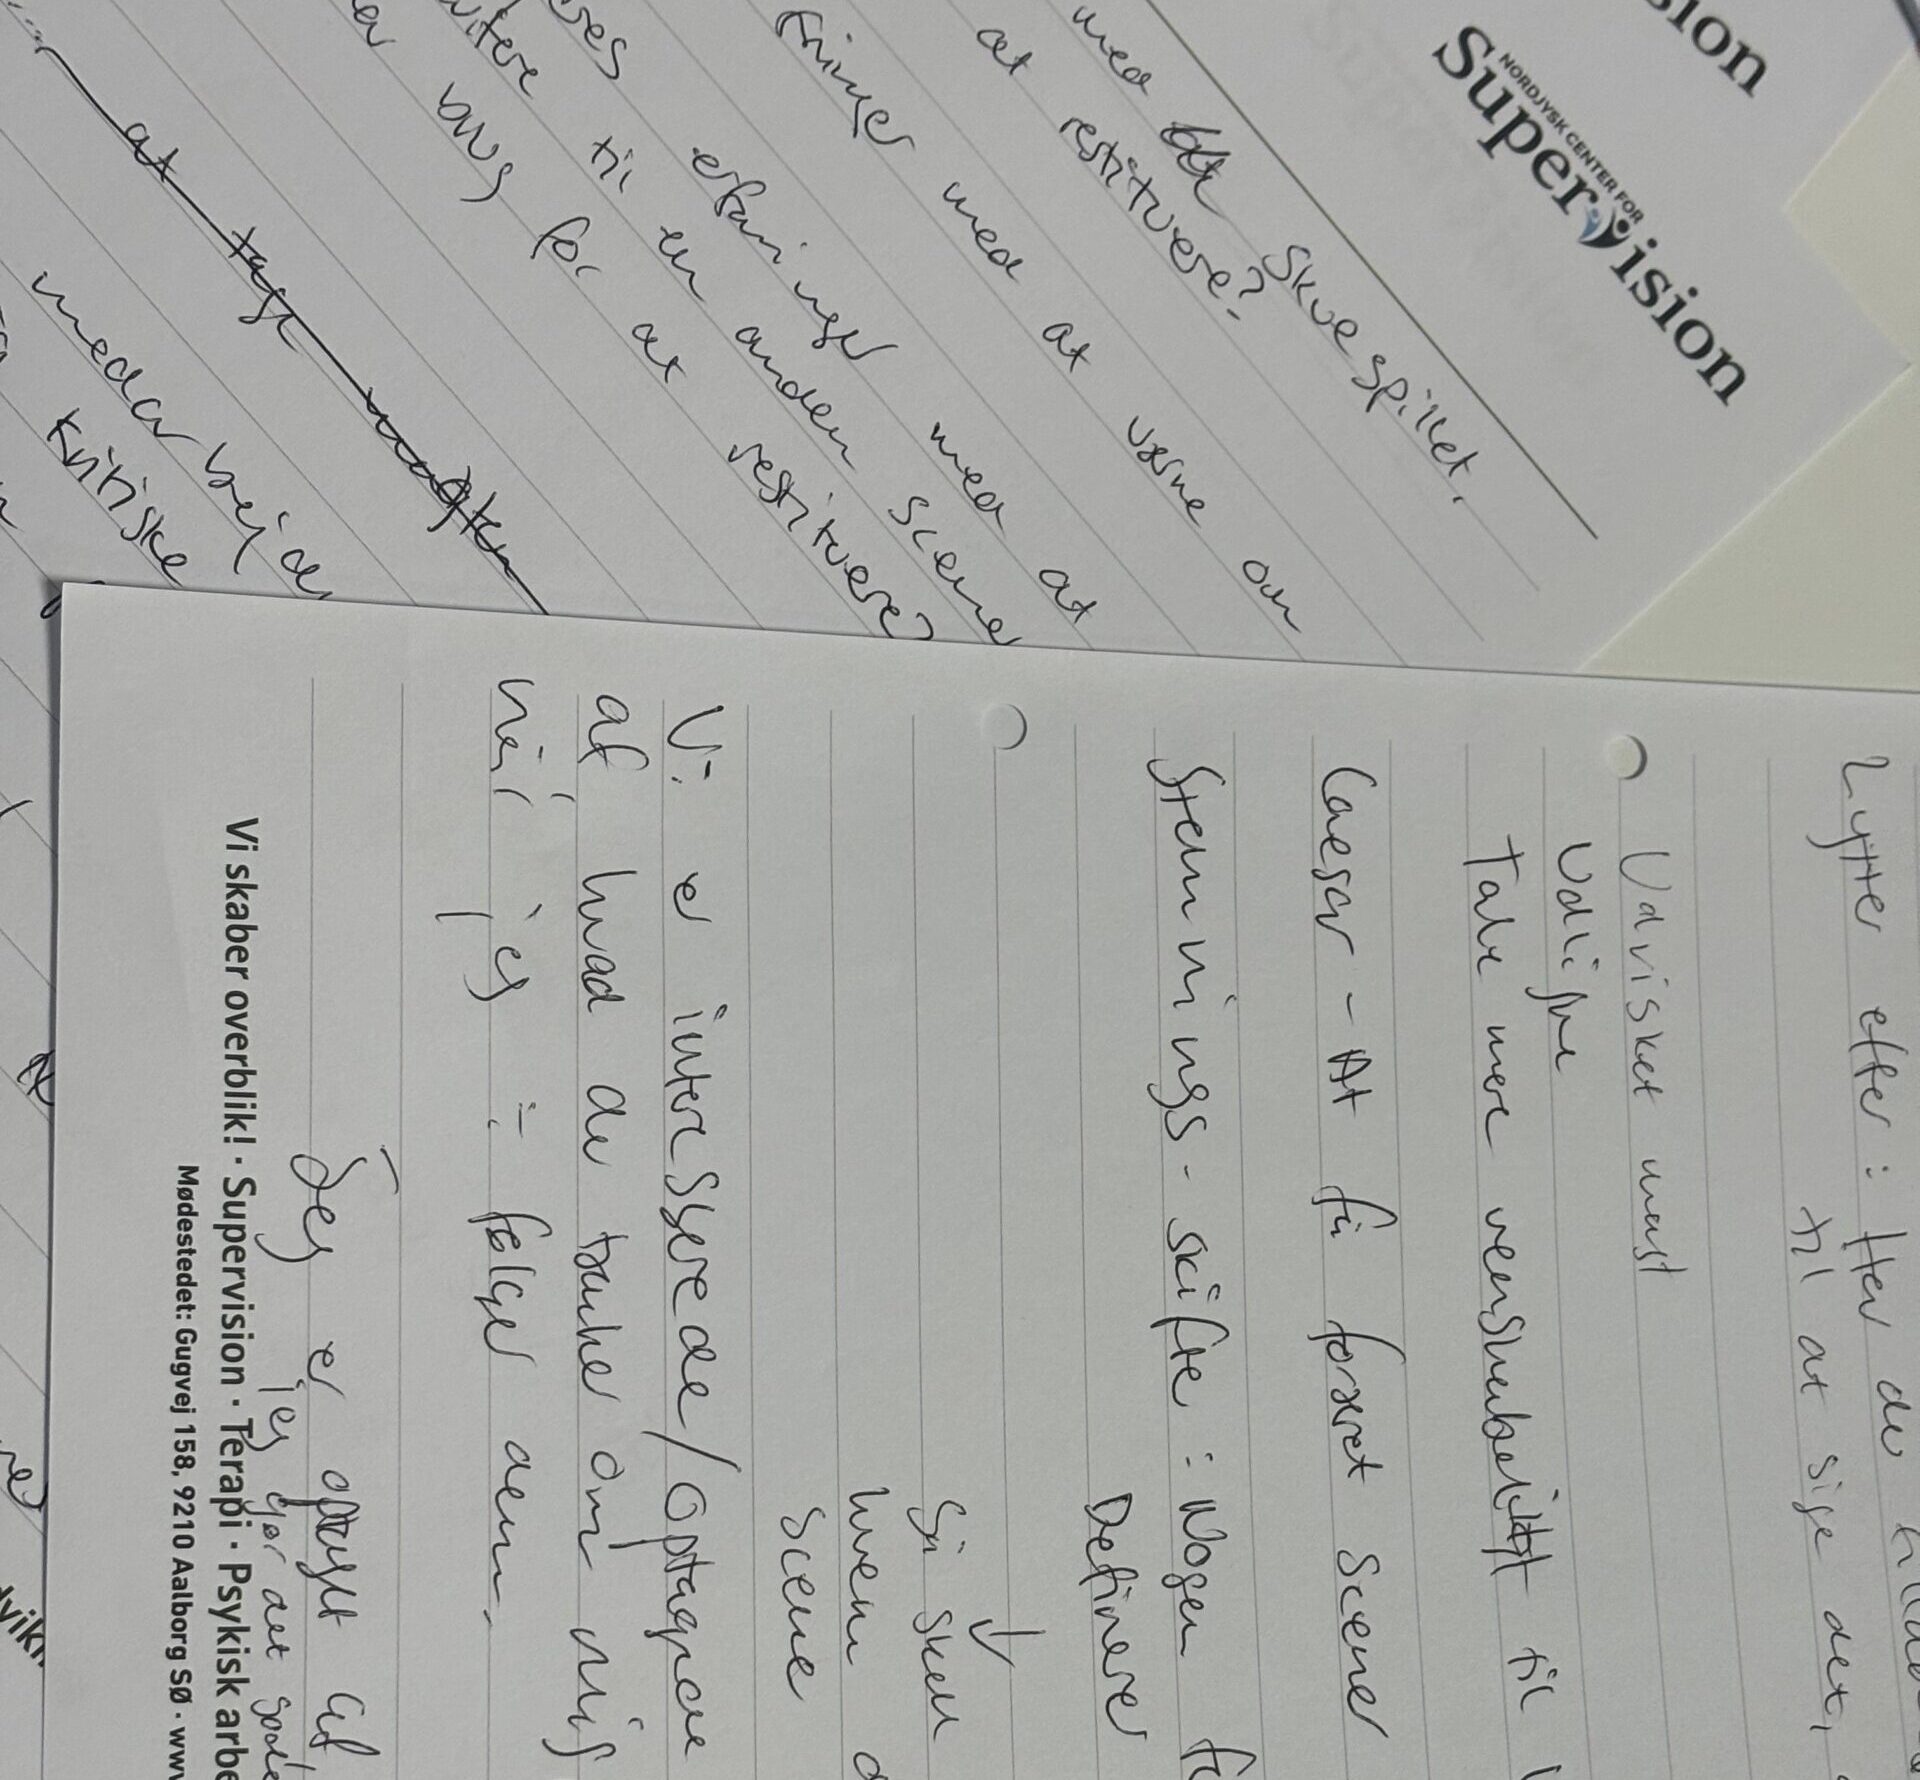 sion
NORDJYSK CENTER FOR
Supervision
med skuespillet.
at restituere?
Erinrer med at værne om
erfaringer med at
til en anden scene
brug for at restituere?
at tage magten
medarbejder
kritiske
Lytter efter: Har du
til at sige det,
Udvisket mest
Udligne
Tale mere venskabeligt til
Caesar - At få foræret scener
Stemnings-skifte: Nogen
Definerer
Så skal
hvem
scene
Vi er interesserede/optagede
af hvad de tænker om mig
når jeg ÷ følger dem.
Jeg er optaget af
jeg gør det godt
Vi skaber overblik! · Supervision · Terapi · Psykisk arbe
Mødestedet: Gugvej 158, 9210 Aalborg SØ · ww